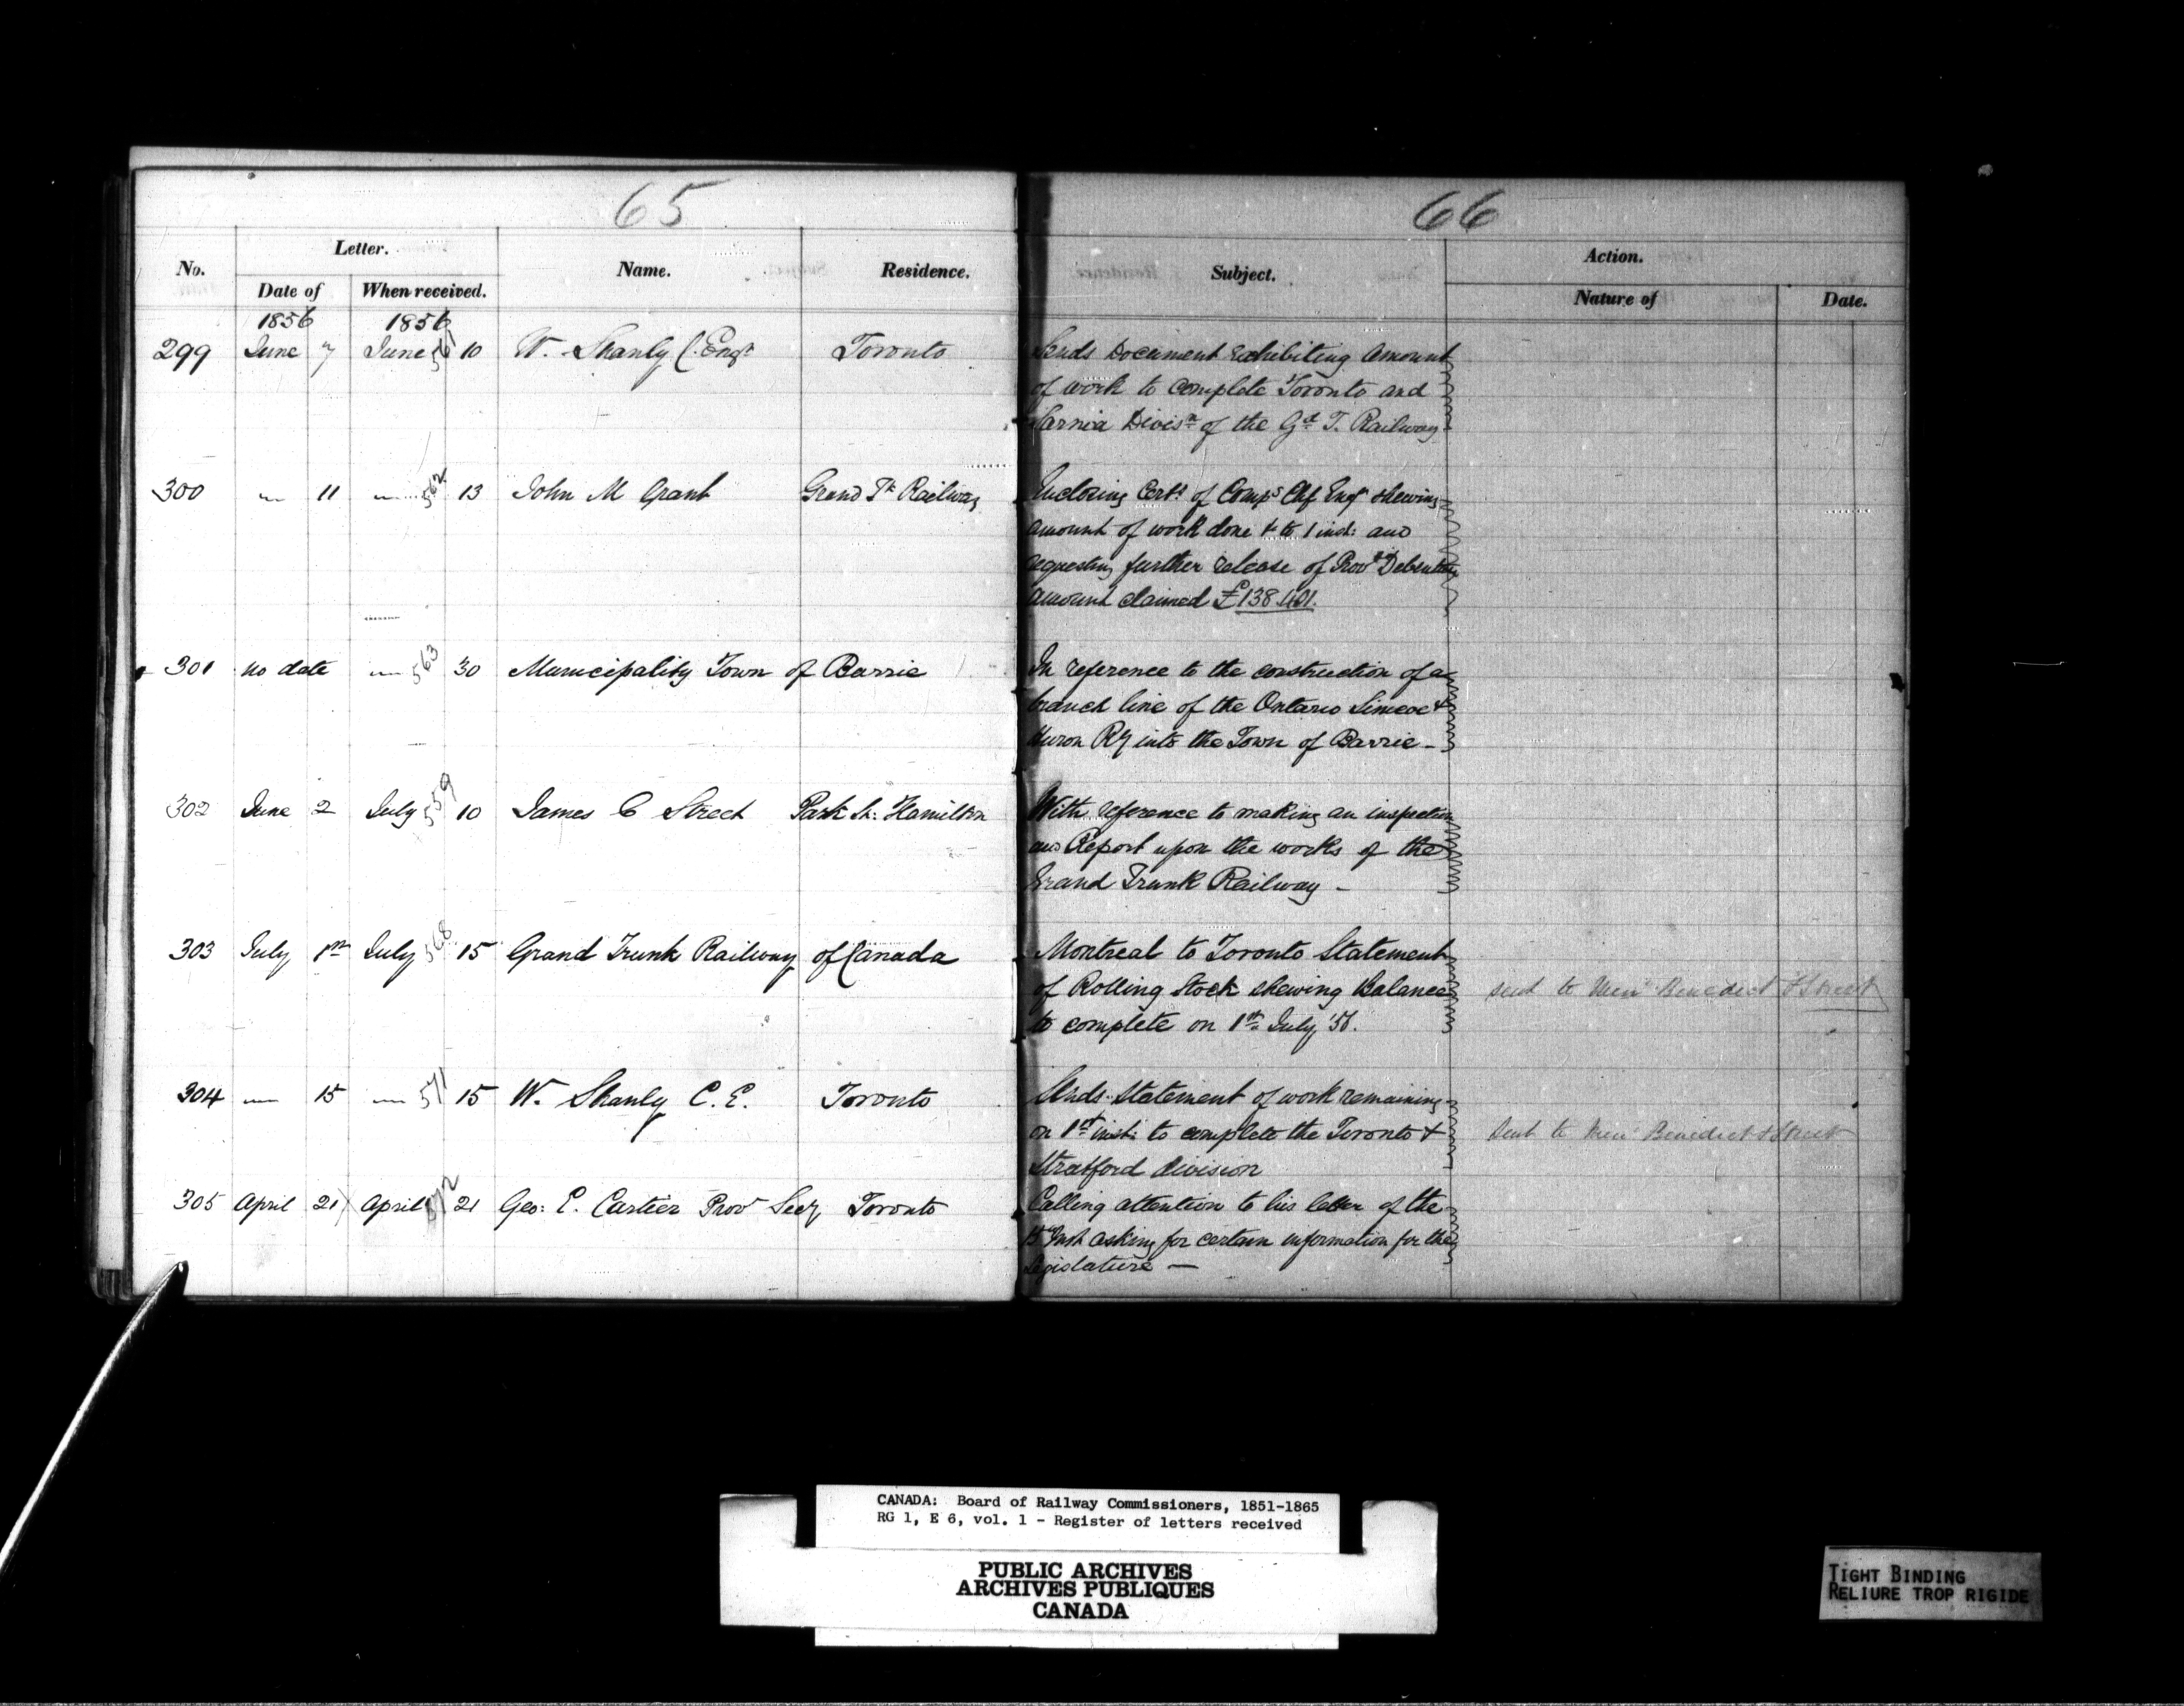 65
66
No.
Letter.
Date of
When received.
Name.
Residence.
Subject.
Action.
Nature of
Date.
1856 1856
299 June 7 June 561 10 W. Shanly C. Engr Toronto
Sends Document exhibiting amount
of work to complete Toronto and
Sarnia Divisn of the Gd T. Railway
300 " 11 " 562 13 John M Grant Grand Tk Railway
Enclosing Certt of Comps Chf Engr shewing
amount of work done to 1 inst: and
requesting further release of Provl Debentures
amount claimed £138.401.
301 no date " 563 30 Municipality Town of Barrie
In reference to the construction of a
branch line of the Ontario Simcoe &
Huron Ry into the Town of Barrie -
302 June 2 July 559 10 James C Street Park St: Hamilton
With reference to making an inspection
and Report upon the works of the
Grand Trunk Railway -
303 July 1st July 568 15 Grand Trunk Railway of Canada
Montreal to Toronto Statement
of Rolling Stock shewing Balance
to complete on 1st July '56.
sent to Messrs Benedict & Street
304 " 15 " 571 15 W. Shanly C. E. Toronto
Sends Statement of work remaining
on 1st inst: to complete the Toronto &
Stratford division
Sent to Messrs Benedict & Street
305 April 21 April 572 21 Geo: E. Cartier Prov Secy Toronto
Calling attention to his letter of the
15 Inst asking for certain information for the
Legislature —
CANADA: Board of Railway Commissioners, 1851-1865
RG 1, E 6, vol. 1 - Register of letters received
PUBLIC ARCHIVES
ARCHIVES PUBLIQUES
CANADA
TIGHT BINDING
RELIURE TROP RIGIDE